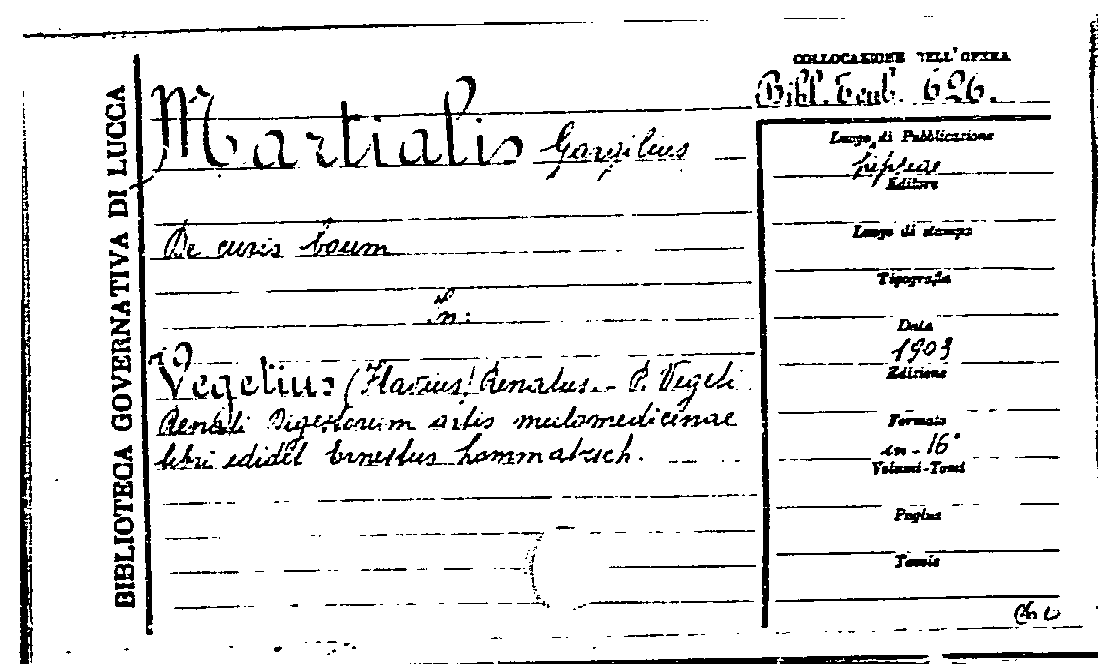 BIBLIOTECA GOVERNATIVA DI LUCCA
COLLOCAZIONE DELL'OPERA
Bibl. Teub. 626.
Martialis Gargilius
De curis boum
in:
Vegetius (Flavius) Renatus. - P. Vegeti
Renati Digestorum artis mulomedicinae
libri edidit Ernestus Lommatzsch.
Luogo di Pubblicazione
Lipsiae
Editore
Luogo di stampa
Tipografia
Data
1903
Edizione
Formato
in-16°
Volumi-Tomi
Pagine
Tavole